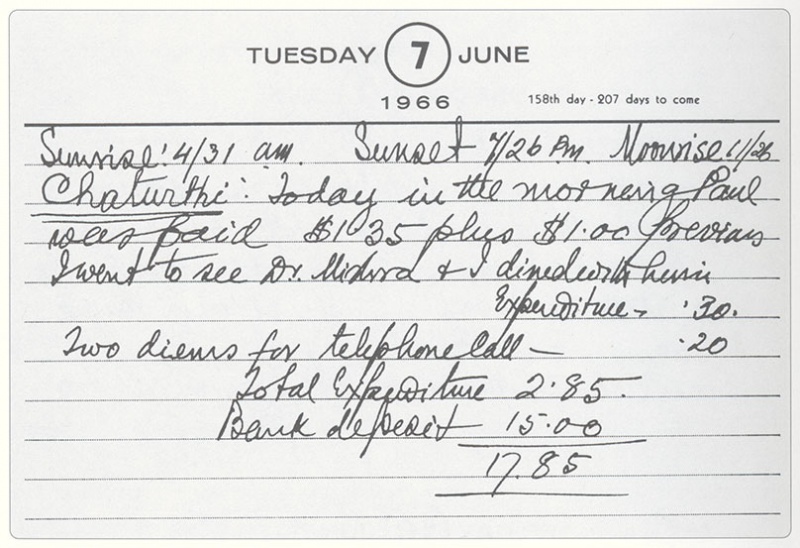 TUESDAY 7 JUNE
1966 158th day - 207 days to come
Sunrise: 4/31 am. Sunset 7/26 Pm. Moonrise: 11/26
Chaturthi: Today in the morning Paul
was paid $1.35 plus $1.00 previous
I went to see Dr. Mishra & I dined with him
Expenditure - .30.
Two diems for telephone call - .20
Total Expediture 2.85.
Bank deposit 15.00
17.85